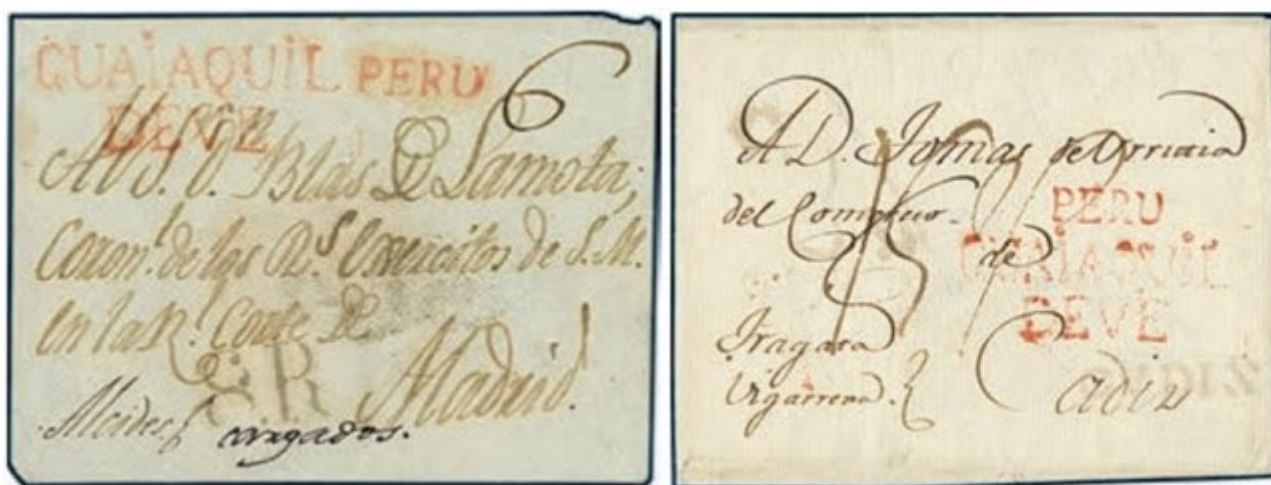 GUAIAQUIL PERU
DEVE
6
Al S. D. Blas de Lamota;
Coron.l de los R.s Exercitos de S.M.
en la R.l Corte de
8 R Madrid.
Alcides. cargados.
A D. Tomas
del Comercio de
PERU
GUAIAQUIL
DEVE
Fragata
Cadiz